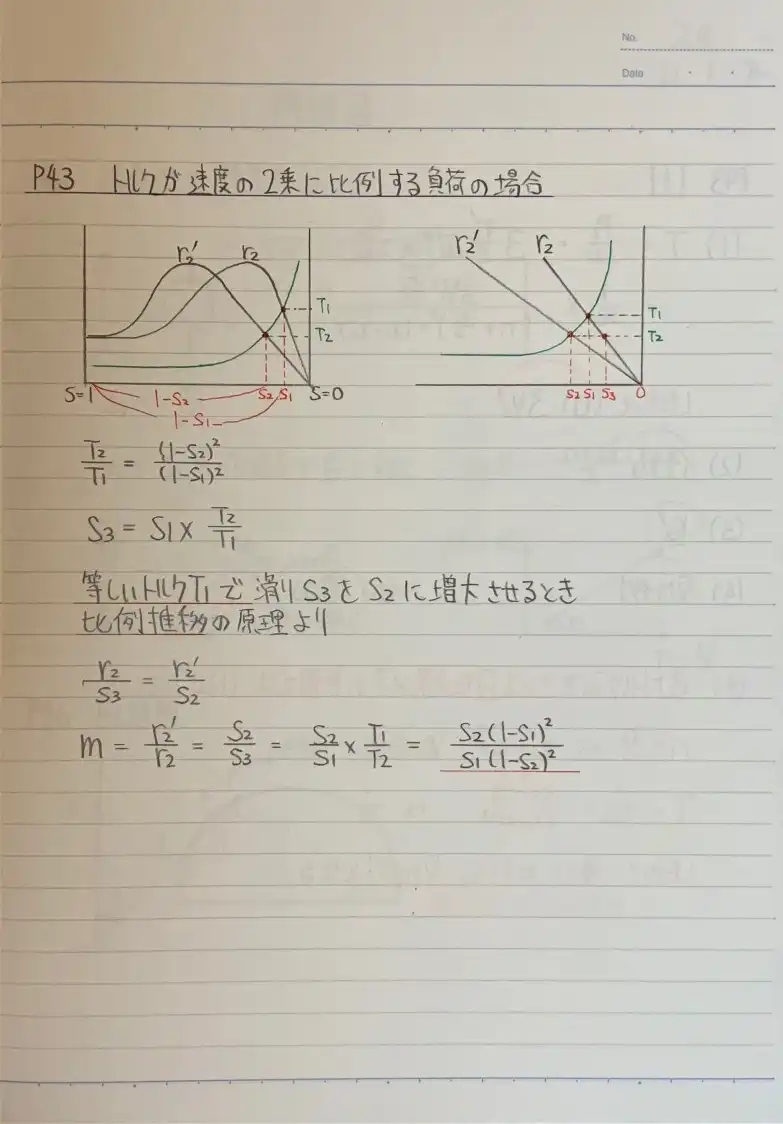 No.
Date
P43 トルクが速度の2乗に比例する負荷の場合
r₂' r₂
T₁
T₂
S=1 1-S₂ S₂ S₁ S=0
1-S₁
r₂' r₂
T₁
T₂
S₂ S₁ S₃ 0
T₂/T₁ = (1-S₂)²/(1-S₁)²
S₃ = S₁ × T₂/T₁
等しいトルクT₁で滑りS₃をS₂に増大させるとき
比例推移の原理より
r₂/S₃ = r₂'/S₂
m = r₂'/r₂ = S₂/S₃ = S₂/S₁ × T₁/T₂ = S₂(1-S₁)²/S₁(1-S₂)²